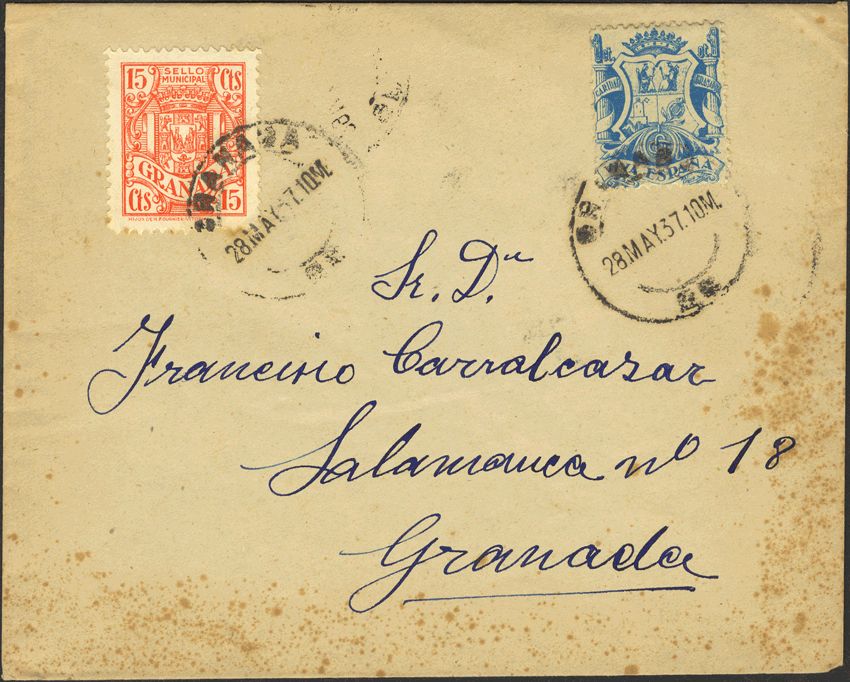 15 SELLO MUNICIPAL Cts
GRANADA
Cts 15
28.MAY.37.10M.
1 Pt. 1 Pt.
CARIDAD
ESPAÑA
28.MAY.37.10M.
Sr. Dn
Francisco Carralcazar
Salamanca nº 18
Granada